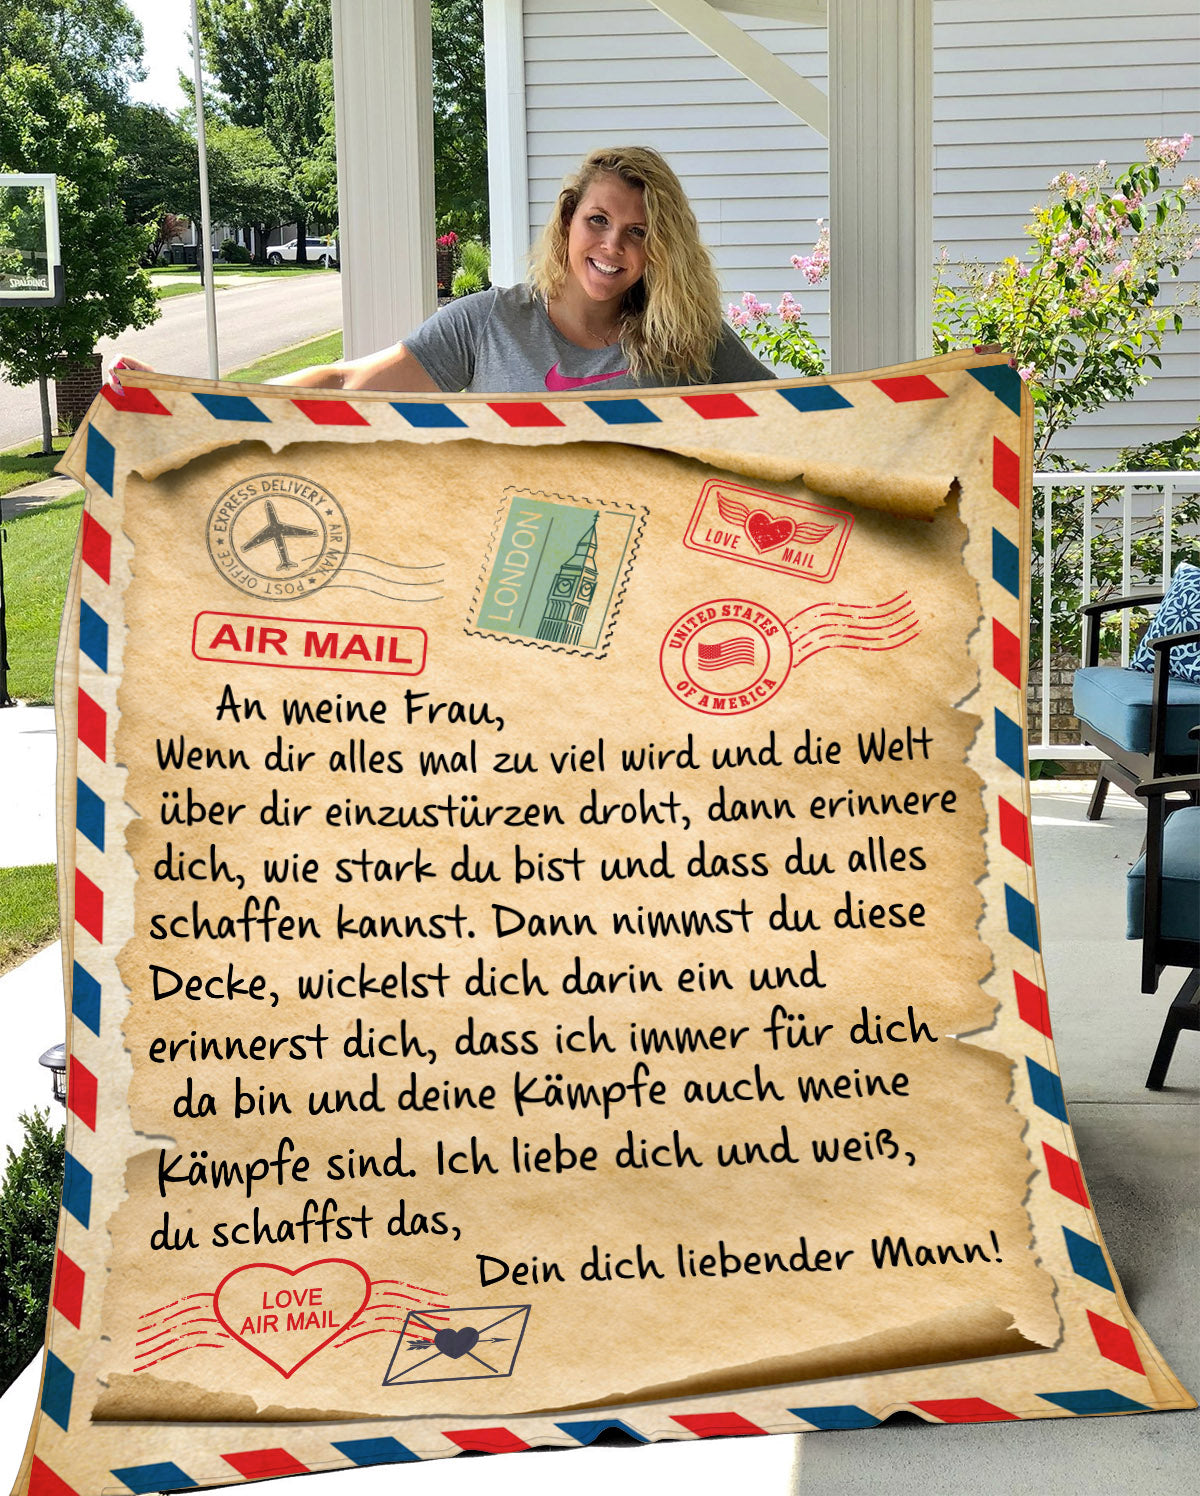 SPALDING
EXPRESS DELIVERY ★ AIR MAIL ★ POST OFFICE ★
LONDON
LOVE MAIL
AIR MAIL
UNITED STATES OF AMERICA
An meine Frau,
Wenn dir alles mal zu viel wird und die Welt
über dir einzustürzen droht, dann erinnere
dich, wie stark du bist und dass du alles
schaffen kannst. Dann nimmst du diese
Decke, wickelst dich darin ein und
erinnerst dich, dass ich immer für dich
da bin und deine Kämpfe auch meine
Kämpfe sind. Ich liebe dich und weiß,
du schaffst das,
Dein dich liebender Mann!
LOVE
AIR MAIL